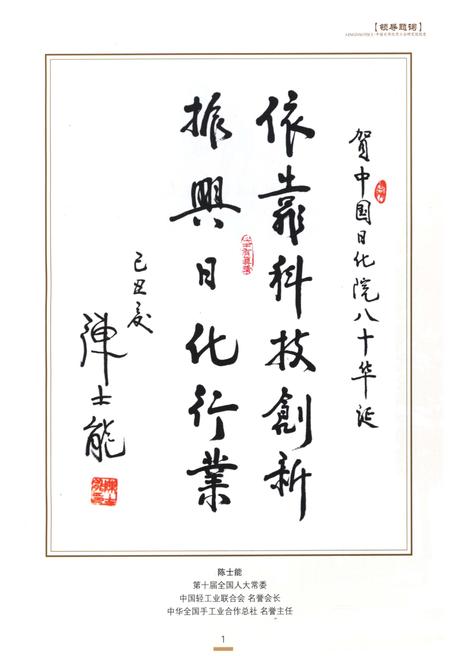 【领导题词】
贺中国日化院八十华诞
依靠科技創新
振興日化行業
己丑夏
陳士能
陈士能
第十届全国人大常委
中国轻工业联合会 名誉会长
中华全国手工业合作总社 名誉主任
1